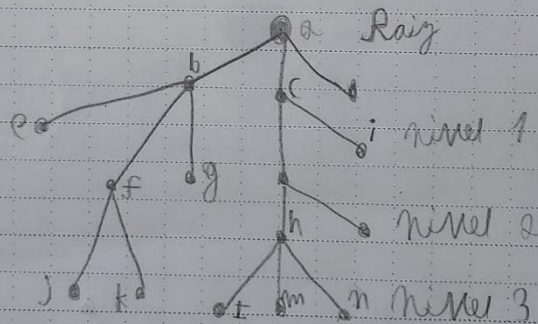 a Raiz
b
c
e
i nivel 1
f g
nivel 2
h
j k l m n nivel 3